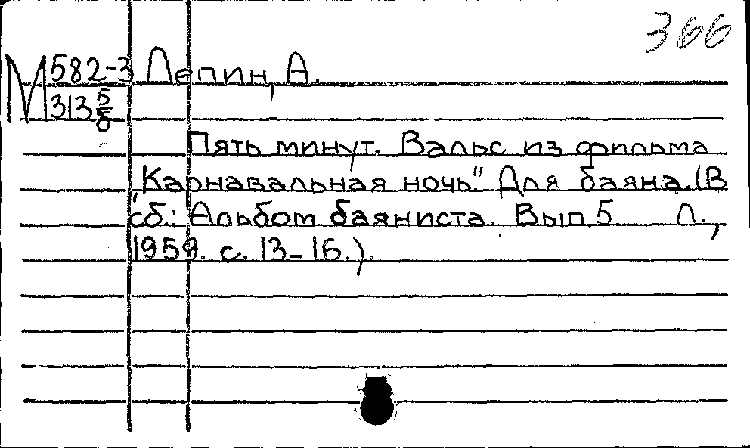 366
М 582-3 Лепин, А.
313 5/б
Пять минут. Вальс из фильма
"Карнавальная ночь." Для баяна. (В
сб.: Альбом баяниста. Вып. 5 Л.,
1959. с. 13-16.).